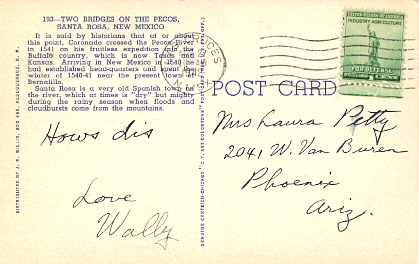 193—TWO BRIDGES ON THE PECOS,
SANTA ROSA, NEW MEXICO
It is said by historians that at or about
this point, Coronado crossed the Pecos River
in 1541 on his fruitless expedition into the
Buffalo country, which is now Texas and
Kansas. Arriving in New Mexico in 1540 he
had established head-quarters and spent the
winter of 1540-41 near the present town of
Bernalillo.
Santa Rosa is a very old Spanish town on
the river, which at times is "dry" but mighty
during the rainy season when floods and
cloudbursts come from the mountains.
Hows dis
Love
Wally
POST CARD
UNITED STATES OF AMERICA
INDUSTRY AGRICULTURE
FOR DEFENSE
Mrs Laura Petty
2041 W. Van Buren
Phoenix
Ariz.